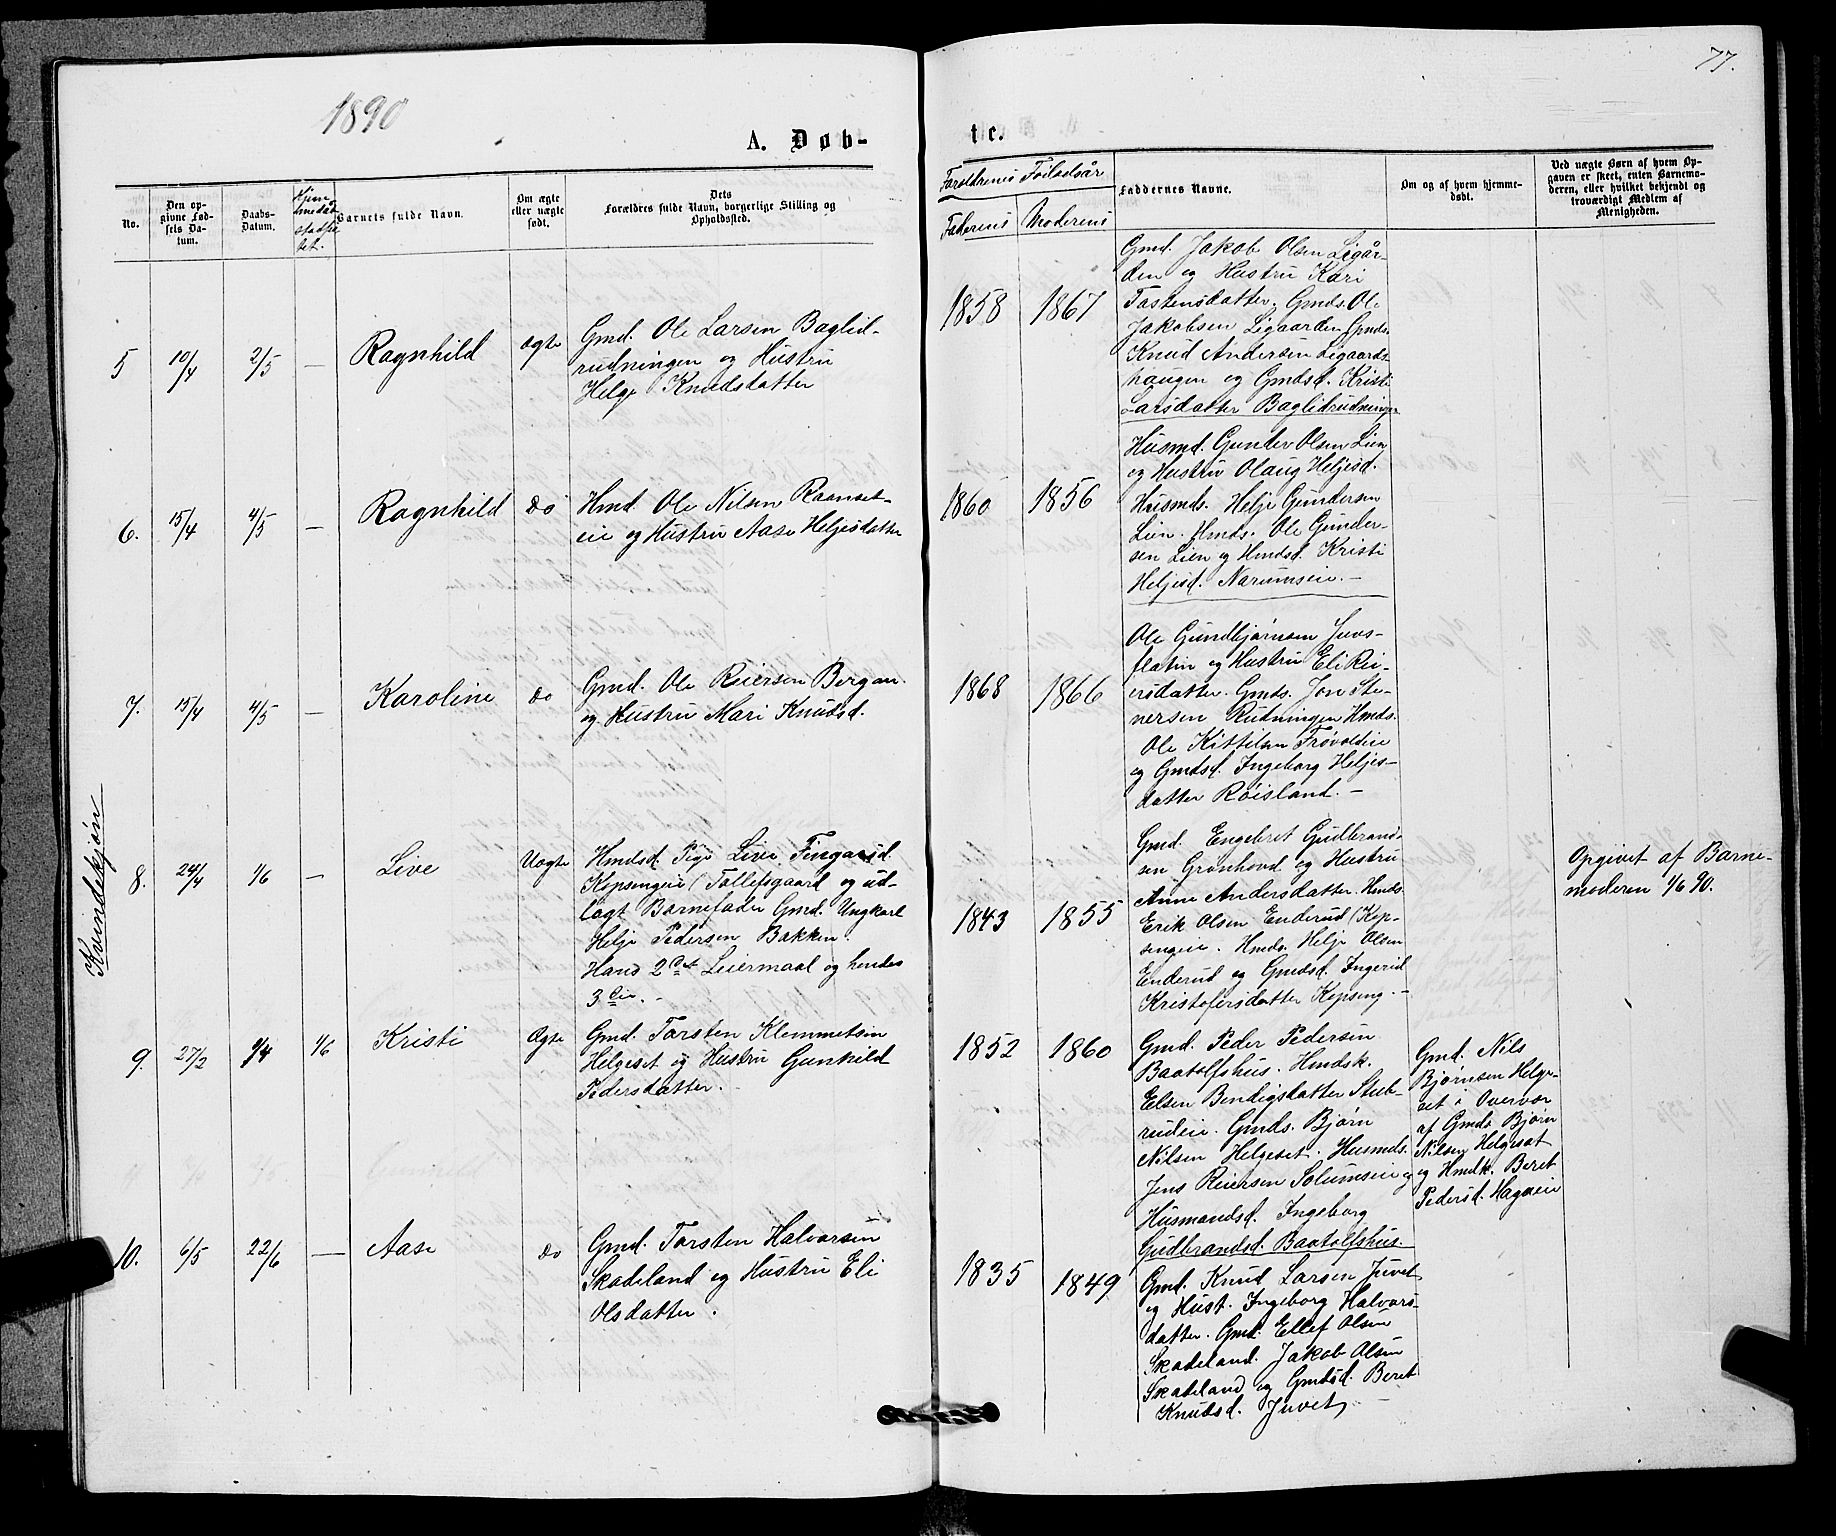 77.
1890
A. Døb-
te.
No.
Den op-
givne Fød-
sels Da-
tum.
Daabs-
Datum.
Hjem-
medåb
stadfæ
tet.
Barnets fulde Navn.
Om ægte
eller uægte
født.
Dets
Forældres fulde Navn, borgerlige Stilling og
Opholdssted.
Forældrenes Födselsår
Faderens
Moderens
Faddernes Navne.
Om og af hvem hjemme-
døbt.
Ved uægte Børn af hvem Op-
gaven er skeet, enten Barnemo-
deren, eller hvilket bekjendt og
troværdigt Medlem af
Menigheden.
Kvindekjøn
5 10/4 2/5 — Ragnhild ægte
Gmd. Ole Larsen Baglid-
rudningen og Hustru
Helge Knudsdatter
1858 1867
Gmd. Jakob Olsen Ligår-
den og Hustru Kari
Tostensdatter. Gmds. Ole
Jakobsen Ligaarden Gmds.
Knud Andersen Ligaards-
haugen og Gmdsd. Kristi
Larsdatter Baglidrudningen
6. 15/4 4/5 — Ragnhild do
Hmd. Ole Nilsen Raanset-
eie og Hustru Aase Heljesdatter
1860 1856
Husmd. Gunder Olsen Lien
og Hustru Olaug Heljesd.
Husmds. Helje Gundersen
Lien. Hmds. Ole Gunder-
sen Lien og Hmdsd. Kristi
Heljesd. Narumseie. —
7. 15/4 4/5 — Karoline do
Gmd. Ole Reiersen Bergan.
og Hustru Mari Knudsd.
1868 1866
Ole Gundbjørnsen Juvs-
flatin og Hustru Eli Rei-
ersdatter. Gmds. Jon Ste-
nersen Rudningen Hmds.
Ole Kittilsen Frøvoldeie
og Gmdsd. Ingeborg Heljes-
datter Röisland. —
8. 24/4 1/6 — Live Uægte
Hmdsd. Pige Live Fingarsd.
Kopsengeie (Tollefsgaard og ud-
lagt Barnefader Gmd. Ungkarl
Helje Pedersen Bakken.
Hans 2det Leiermaal og hendes
3die. —
1843 1855
Gmd. Engebret Gudbrand-
sen Grønhovd og Hustru
Anne Andersdatter. Hmds.
Erik Olsen Enderud (Kop-
sengeie. Hmds. Helje Olsen
Enderud og Gmdsd. Ingerid
Kristofersdatter Kopseng. —
Opgivet af Barne-
moderen 1/6 90.
9. 27/2 1/4 1/6 Kristi Ægte
Gmd. Torsten Klemmetsen
Helgeset og Hustru Gunhild
Pedersdatter.
1852 1860
Gmd. Peder Pedersen
Baatolfshus. Hmdsk.
Elsen Bendigsdatter Stub-
rudeie. Gmds. Bjørn
Nilsen Helgeset. Husmds.
Jens Reiersen Solumseie og
Husmandsd. Ingeborg
Gudbrandsd. Baatolfshus.
Gmd. Nils
Bjørnsen Helge-
set i Overvær
af Gmds Bjørn
Nilsen Helgeset
og Hmdk. Beret
Pedersd. Hagaeie
10. 6/5 22/6 — Aase do
Gmd. Torsten Halvorsen
Skadeland og Hustru Eli
Olsdatter.
1835 1849
Gmd. Knud Larsen Juvet
og Hust. Ingeborg Halvors-
datter. Gmd. Ellef Olsen
Skadeland. Jakob Olsen
Skadeland og Gmdsd. Beret
Knudsd. Juvet, —